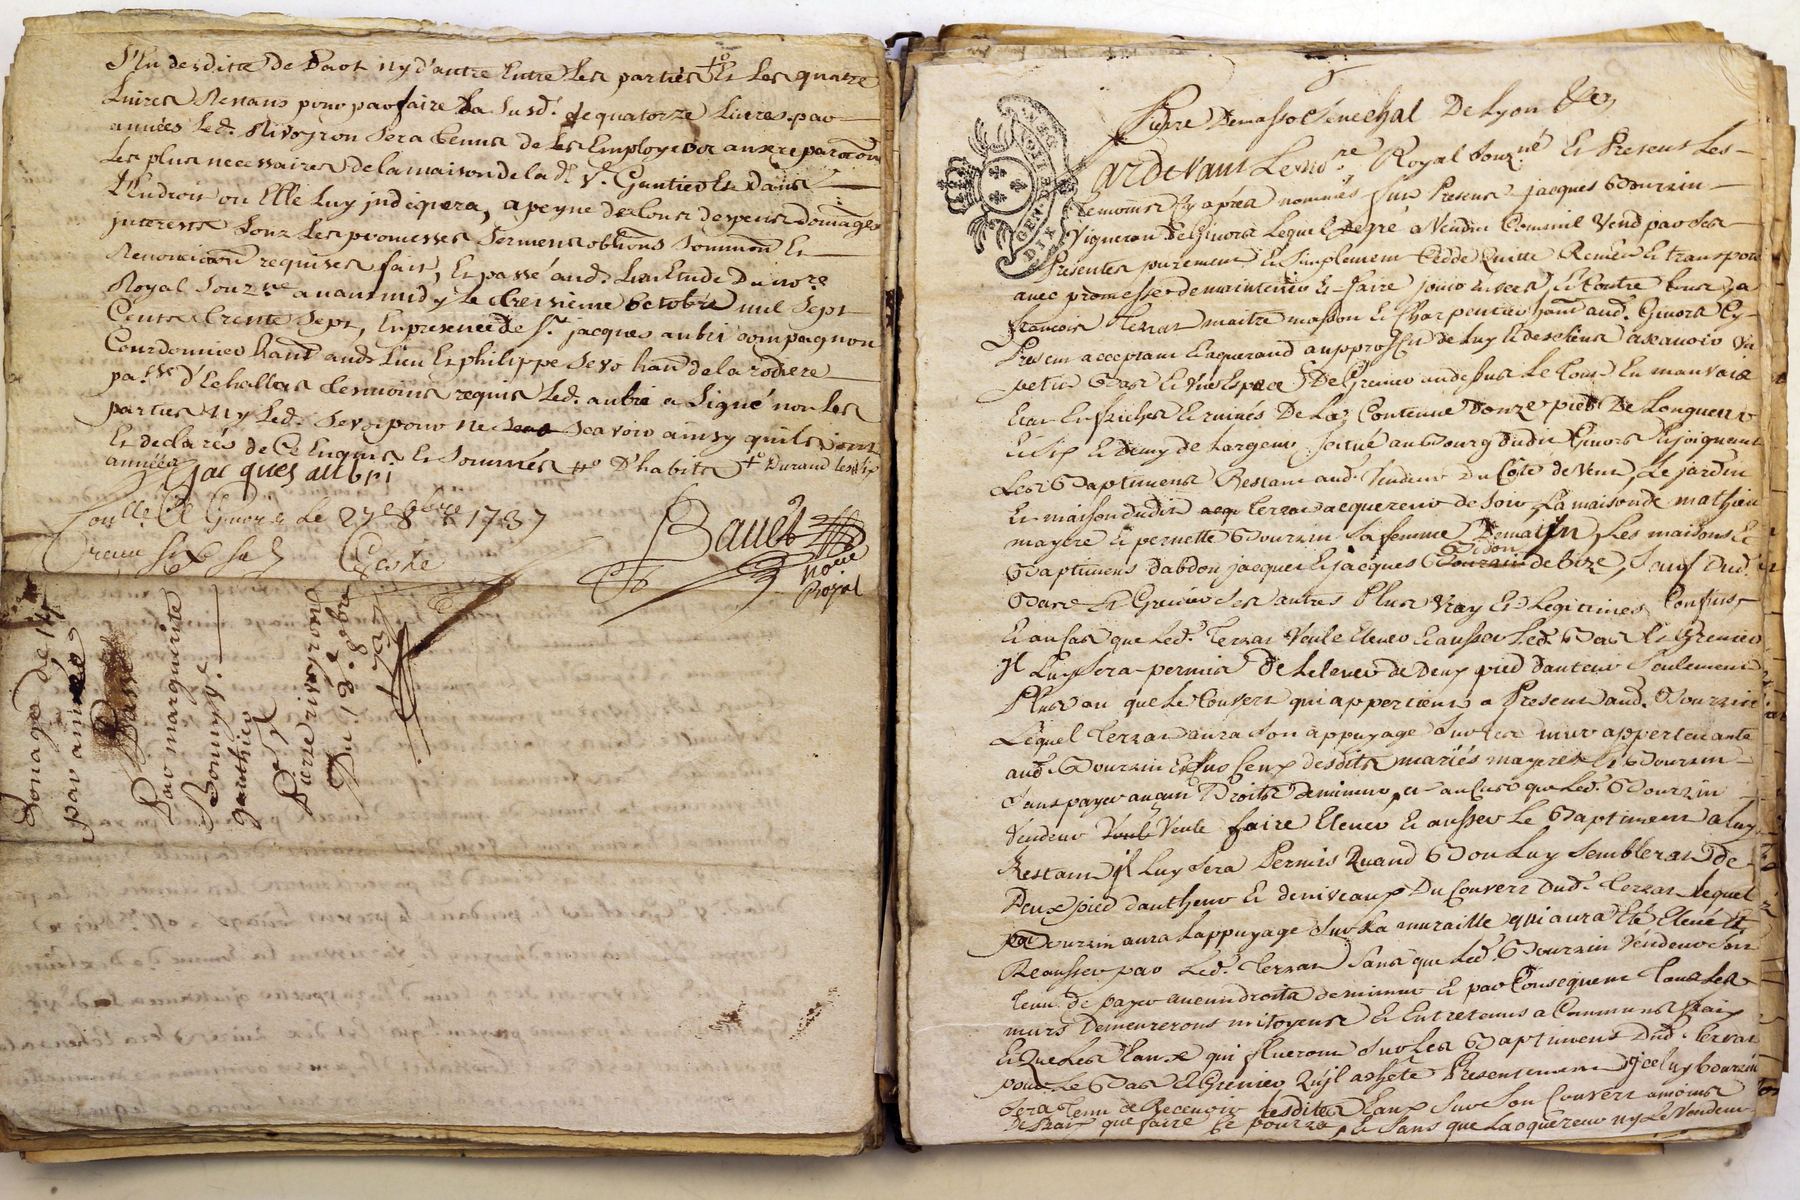 Et les quatre
livres Restans pour parfaire la susd. de quatorze livres par
années led. Rivoyron sera tenus de les Employer aux reparaõns
les plus necessaires de la maison de la de. Ve. Gautier Et dans
l'Endroit ou Elle luy jndiquera, a peyne de tous despens domages
jnterests sous les promesses sermens oblõns soummõn Et
Renonciaõns requises fait, Et passé aud. lieu Etude Du nore
Royal souzne. avant midy le treisieme octobre mil sept
Cents trente sept, En presence de sr. jacques aubri compagnon
Courdonnier habt aud. lieu Et philippe sevo habt de la rodiere
pase. d'Echallas temoins requis led. aubri a signé non les
parties ny led. sevo pour ne scavoir ainsy quils ont
Et declarés de Ce Enquis Et sommés
années jacques aubri
Conlle. A Givors le 27e 8bre 1737
Bauet
nore
Royal
Louage de 14
par année
Passé
Par marguerite
Bonny ve.
gauthier
A
Pierre rivoyron
Du 13e 8bre
1737
Pierre Demasso Senechal De Lyon
Pardevant Le nore. Royal souzné Et Presens Les
temoins Cy aprés nommés fut Present jacques Bourrin
Vigneron De Givors Lequel de gré a Vendu Comme il Vend par ses
Presentes purement Et simplement Cedde Quitte Remet Et transporte
avec promesse de maintenir Et faire jouir Envers Et Contre tous a
francois terras maitre masson Et charpentier habt aud. Givors Cy
Present acceptant Et aquerand au proffit de luy Et des siens ascavoir Un
petit Bas Et Un Espace De Grenier au dessus Le tout En mauvais
Etat En friches Et ruinés De La Contenue D'onze pied De Longueur
Et six Et demy de Largeur, scitué au Bourg dudit Givors Et joignant
Les Baptimens Restant aud. Vendeur Du Côté de Vent, Le jardin
Et maison dudit terras acquereur de soir, La maison de mathieu
mayere Et pernette Bourrin sa femme De matin, Les maisons Et
Baptimens d'abdon jacquet Et jacques Bidon de Bize, sauf Dud.
Bas Et Grenier ses autres Plus Vray Et Legitimes Confins
Et au Cas que Led. terras Veule Elever Et ausser Led. Bas Et Grenier
jl Luy sera permis De L'elever de Deux pied d'auteur seulement
Plus au que Le Couvert qui appertient a Present aud. Bourrin
Lequel terras aura son appuyage sur les murs appertenants
aud. Bourrin Et sur ceux desdits mariés mayere Et Bourrin
sans payer aucun Droits De mimur, Et au Cas que Led. Bourrin
Vendeur Veule faire Elever Et ausser Le Baptiment a luy
Restant jl Luy sera Permis Quand Bon Luy semblera De
Deux pied d'autheur Et de niveaux Du Couvert dud. terras lequel
Bourrin aura L'appuyage sur La muraille qui aura Eté Elevé Et
Reausser par Led. terras sans que Led. Bourrin Vendeur soit
tenu de payer aucun droits de mimur Et par Consequent tous Les
murs Demeurerons mitoyens Et Entretenus a Communs fraix
Et Que Les Eaux qui fluerons sur Les Baptimens Dud. terras
pour Le Bas Et Grenier Qu'jl achete Presentement jceluy Bourrin
sera tenu de Recevoir lesdites Eaux sur son Couvert amoins
De fraix que faire se pourra, Et sans que L'acquereur ny Le Vendeur